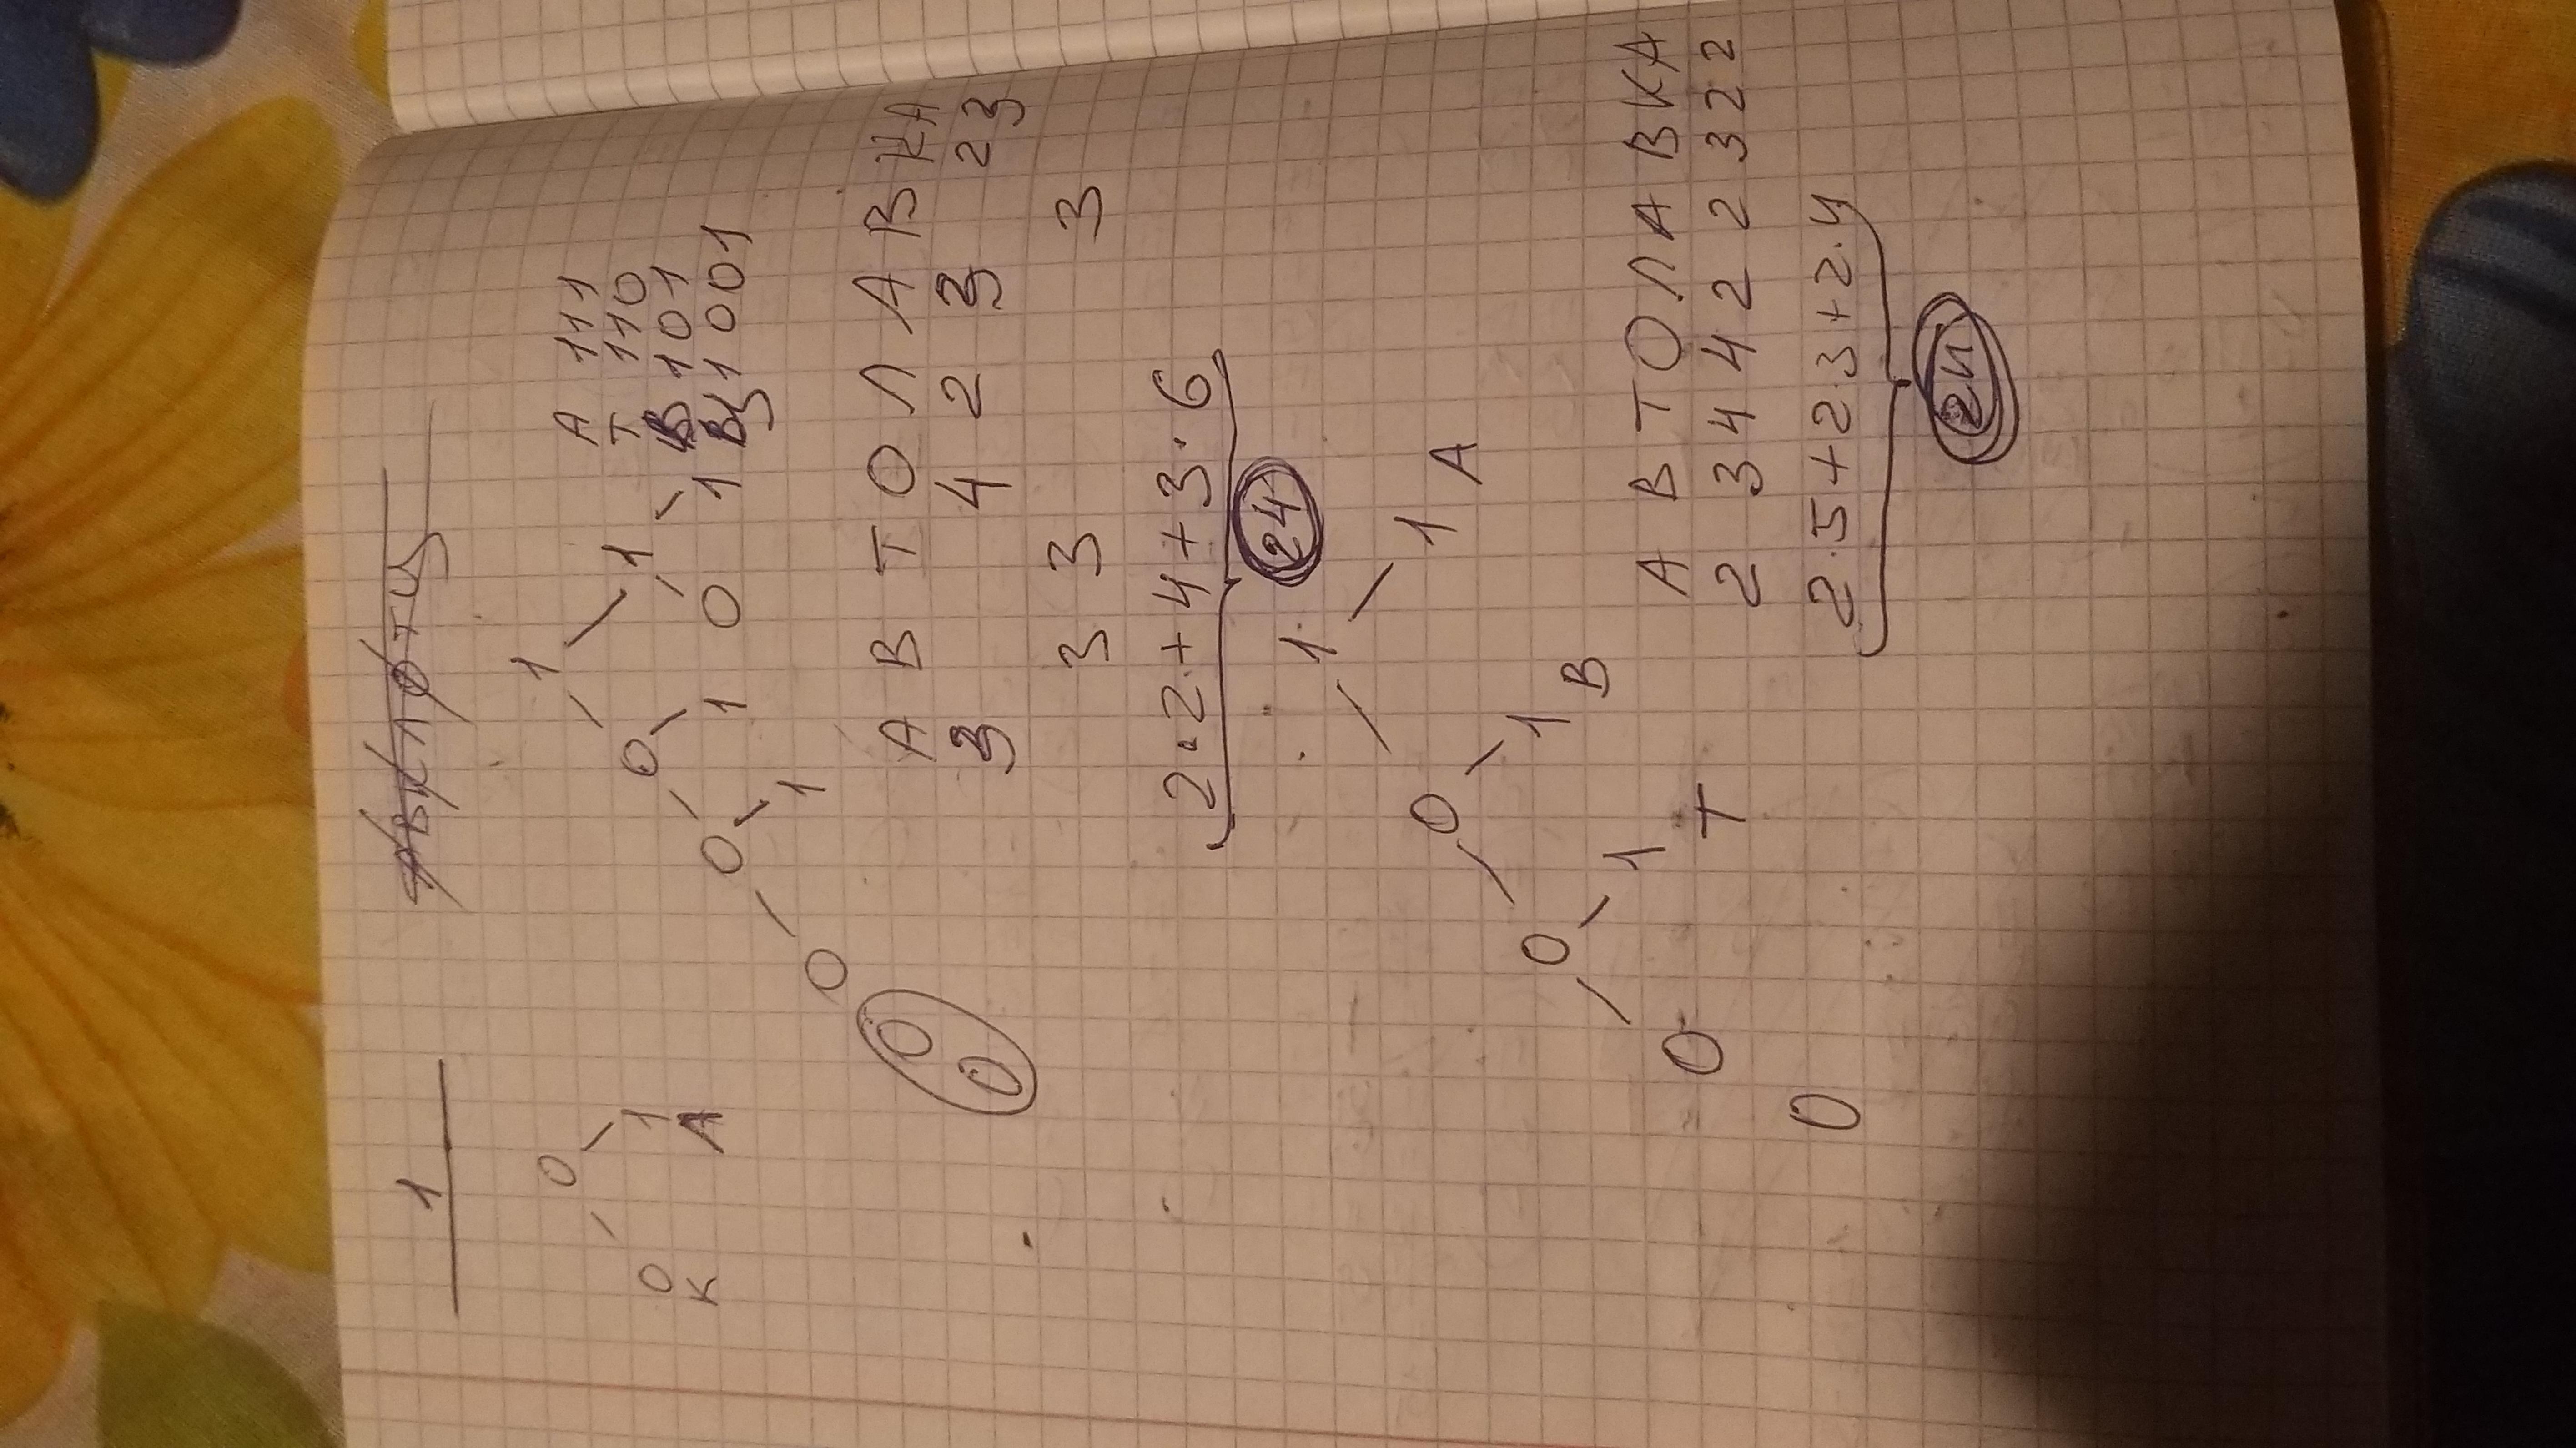 1
0
0 1
К А
1
0 1
0 1 0 1
0 1
0
0
0
А 111
Т 110
В 101
1001
А В Т О Л А В К А
3 4 2 3 2 3
3 3 3
2·2+4+3·6
24
1
0 1
А
0 1
В
0 1
Т
0
А В Т О Л А В К А
2 3 4 4 2 2 3 2 2
2·5+2·3+2·4
24